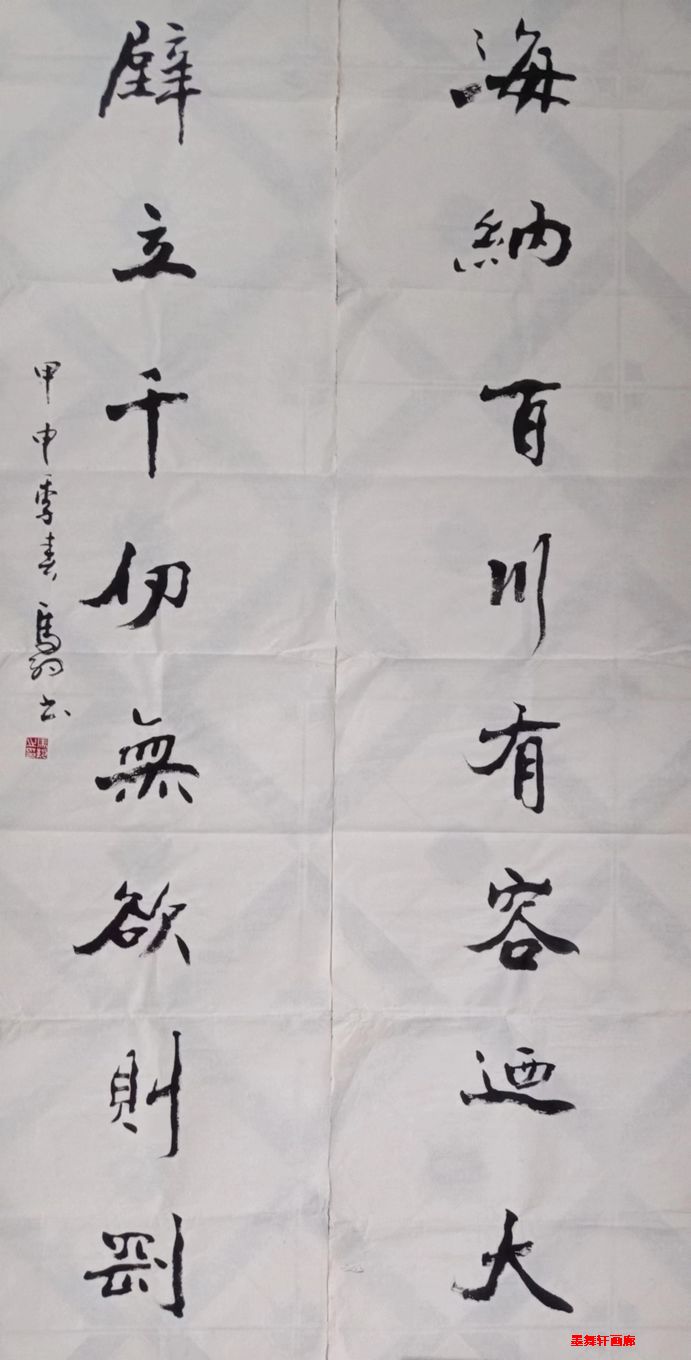 海納百川有容迺大
壁立千仞無欲則剛
甲申季春馬书
墨舞轩画廊